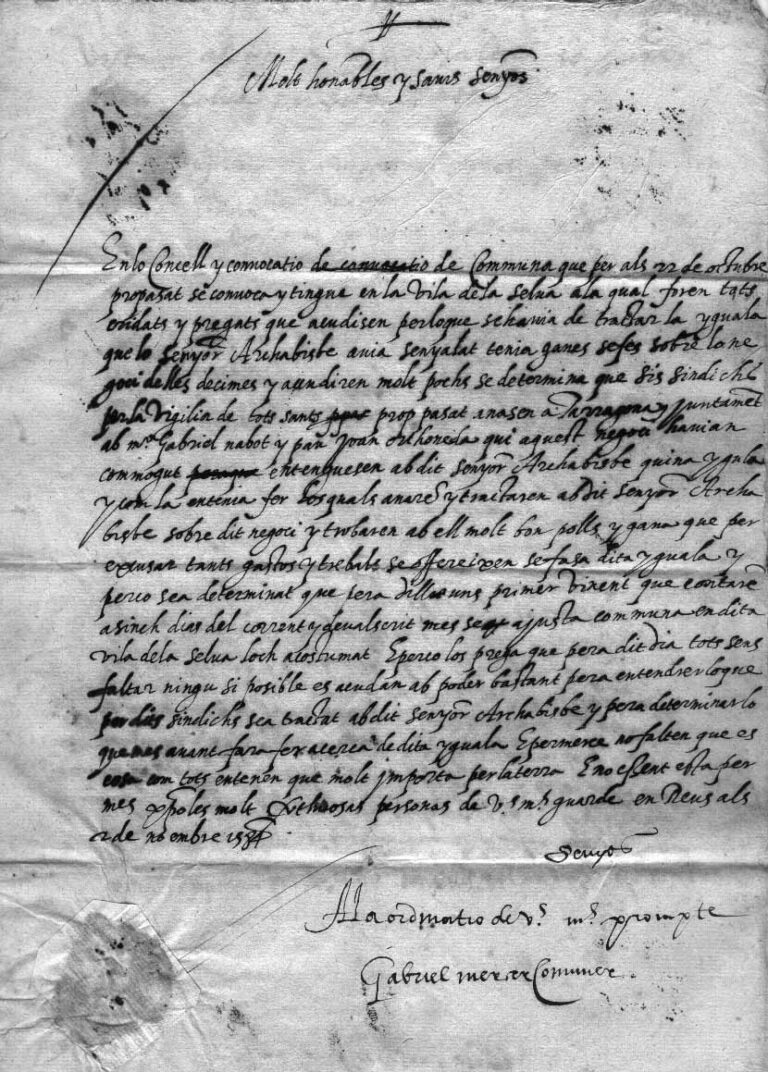 Molt honables y savis senyors
En lo Concell y convocatio de convocatio de Communa que per als 22 de octubre
propasat se convoca y tingue en la vila de la selva ala qual foren tots
cridats y pregats que acudisen per lo que se havia de tractar la yguala
que lo senyor Archabisbe avia senyalat tenia ganes se fes sobre lo ne
goci de les decimes y acudiren molt pochs se determina que sis sindichs
per la vigilia de tots sants prop pasat anasen a Tarragona y juntament
ab mr Gabriel nabot y pau Joan qui aquest negoci havian
commogut entenguesen ab dit senyor Archabisbe quina yguala
y com la entenia fer los quals anaren y tractaren ab dit senyor Archa
bisbe sobre dit negoci y trobaren ab ell molt bon polls y gana que per
excusar tants gastos y trebals se offereixen se fasa dita yguala y
perco sea determinat que lo dilluns primer vinent que contarem
a sinch dias del corrent y devalscrit mes se ajusta communa en dita
vila dela selva loch acostumat E perco los prega que pera dit dia tots sens
faltar ningu si posible es acudan ab poder bastant pera entendrer lo que
per dits sindichs sea tractat ab dit senyor Archabisbe y pera determinar lo
que mes avant fara fer acerca de dita yguala E per merce no falten que es
cosa com tots entenen que molt importa per la terra E no essent esta per
mes molt personas de v.s m.s guarde en Reus als
2 de noembre
Senyors
A la ordinatio de v.s m.s prompte
Gabriel mercer Comuner